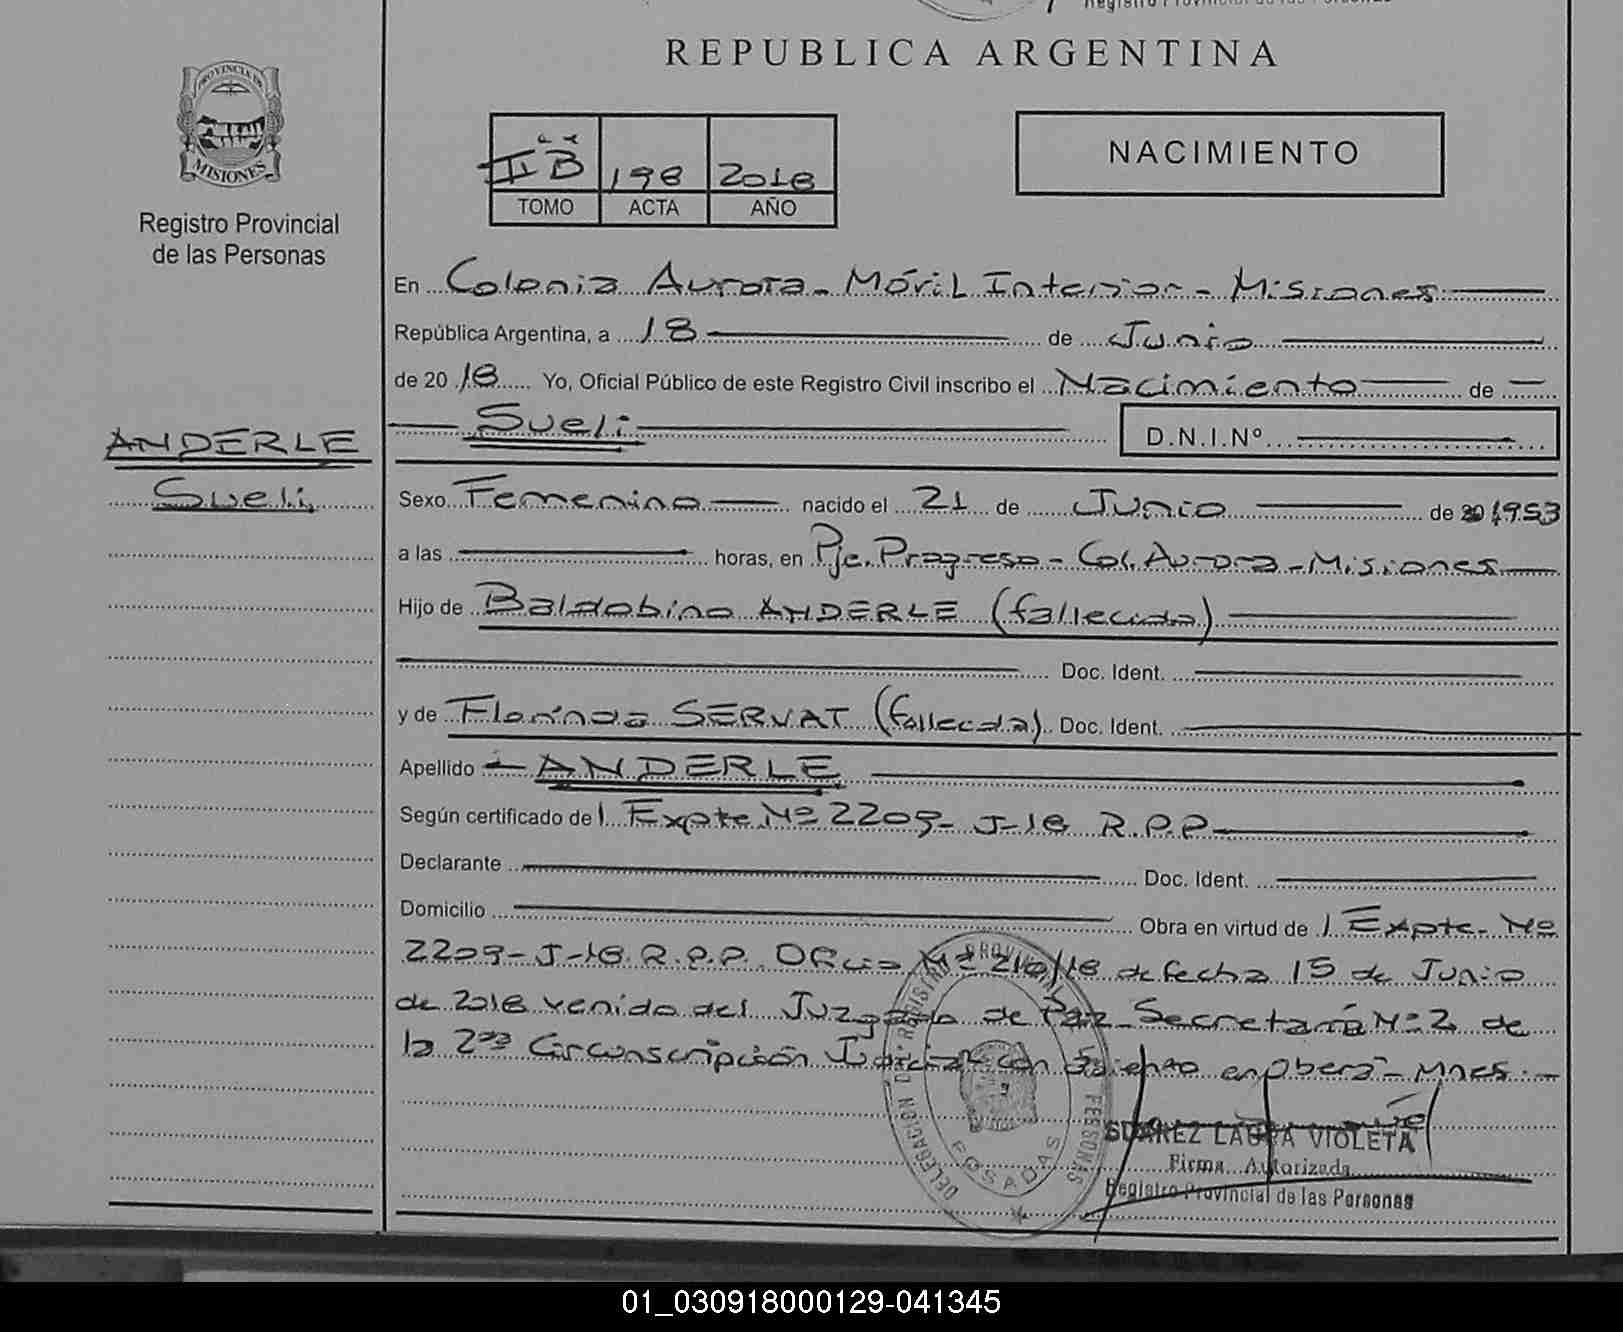 Registro Provincial de las Personas
REPUBLICA ARGENTINA
PROVINCIA DE
MISIONES
Registro Provincial
de las Personas
II B 198 2018
TOMO ACTA AÑO
NACIMIENTO
En Colonia Aurora - Móvil Interior - Misiones
República Argentina, a 18 de Junio
de 2018 Yo, Oficial Público de este Registro Civil inscribo el Nacimiento de
Sueli D.N.I.Nº
ANDERLE
Sueli
Sexo Femenino nacido el 21 de Junio de 1953
a las horas, en Pje. Progreso - Col. Aurora - Misiones
Hijo de Baldobino ANDERLE (fallecido)
Doc. Ident.
y de Florinda SERVAT (fallecida) Doc. Ident.
Apellido ANDERLE
Según certificado de Expte Nº 2209- J-18 R.P.P
Declarante Doc. Ident.
Domicilio Obra en virtud de Expte. Nº
2209-J-18 R.P.P. Oficio Nº 210/18 de fecha 15 de Junio
de 2018 venido del Juzgado de Paz Secretaría Nº 2 de
la 2da Circunscripción Judicial con asiento en Oberá - Mnes. -
DELEGACION DEL REGISTRO PROVINCIAL DE LAS PERSONAS
POSADAS
SUAREZ LAURA VIOLETA
Firma Autorizada
Registro Provincial de las Personas
01_030918000129-041345